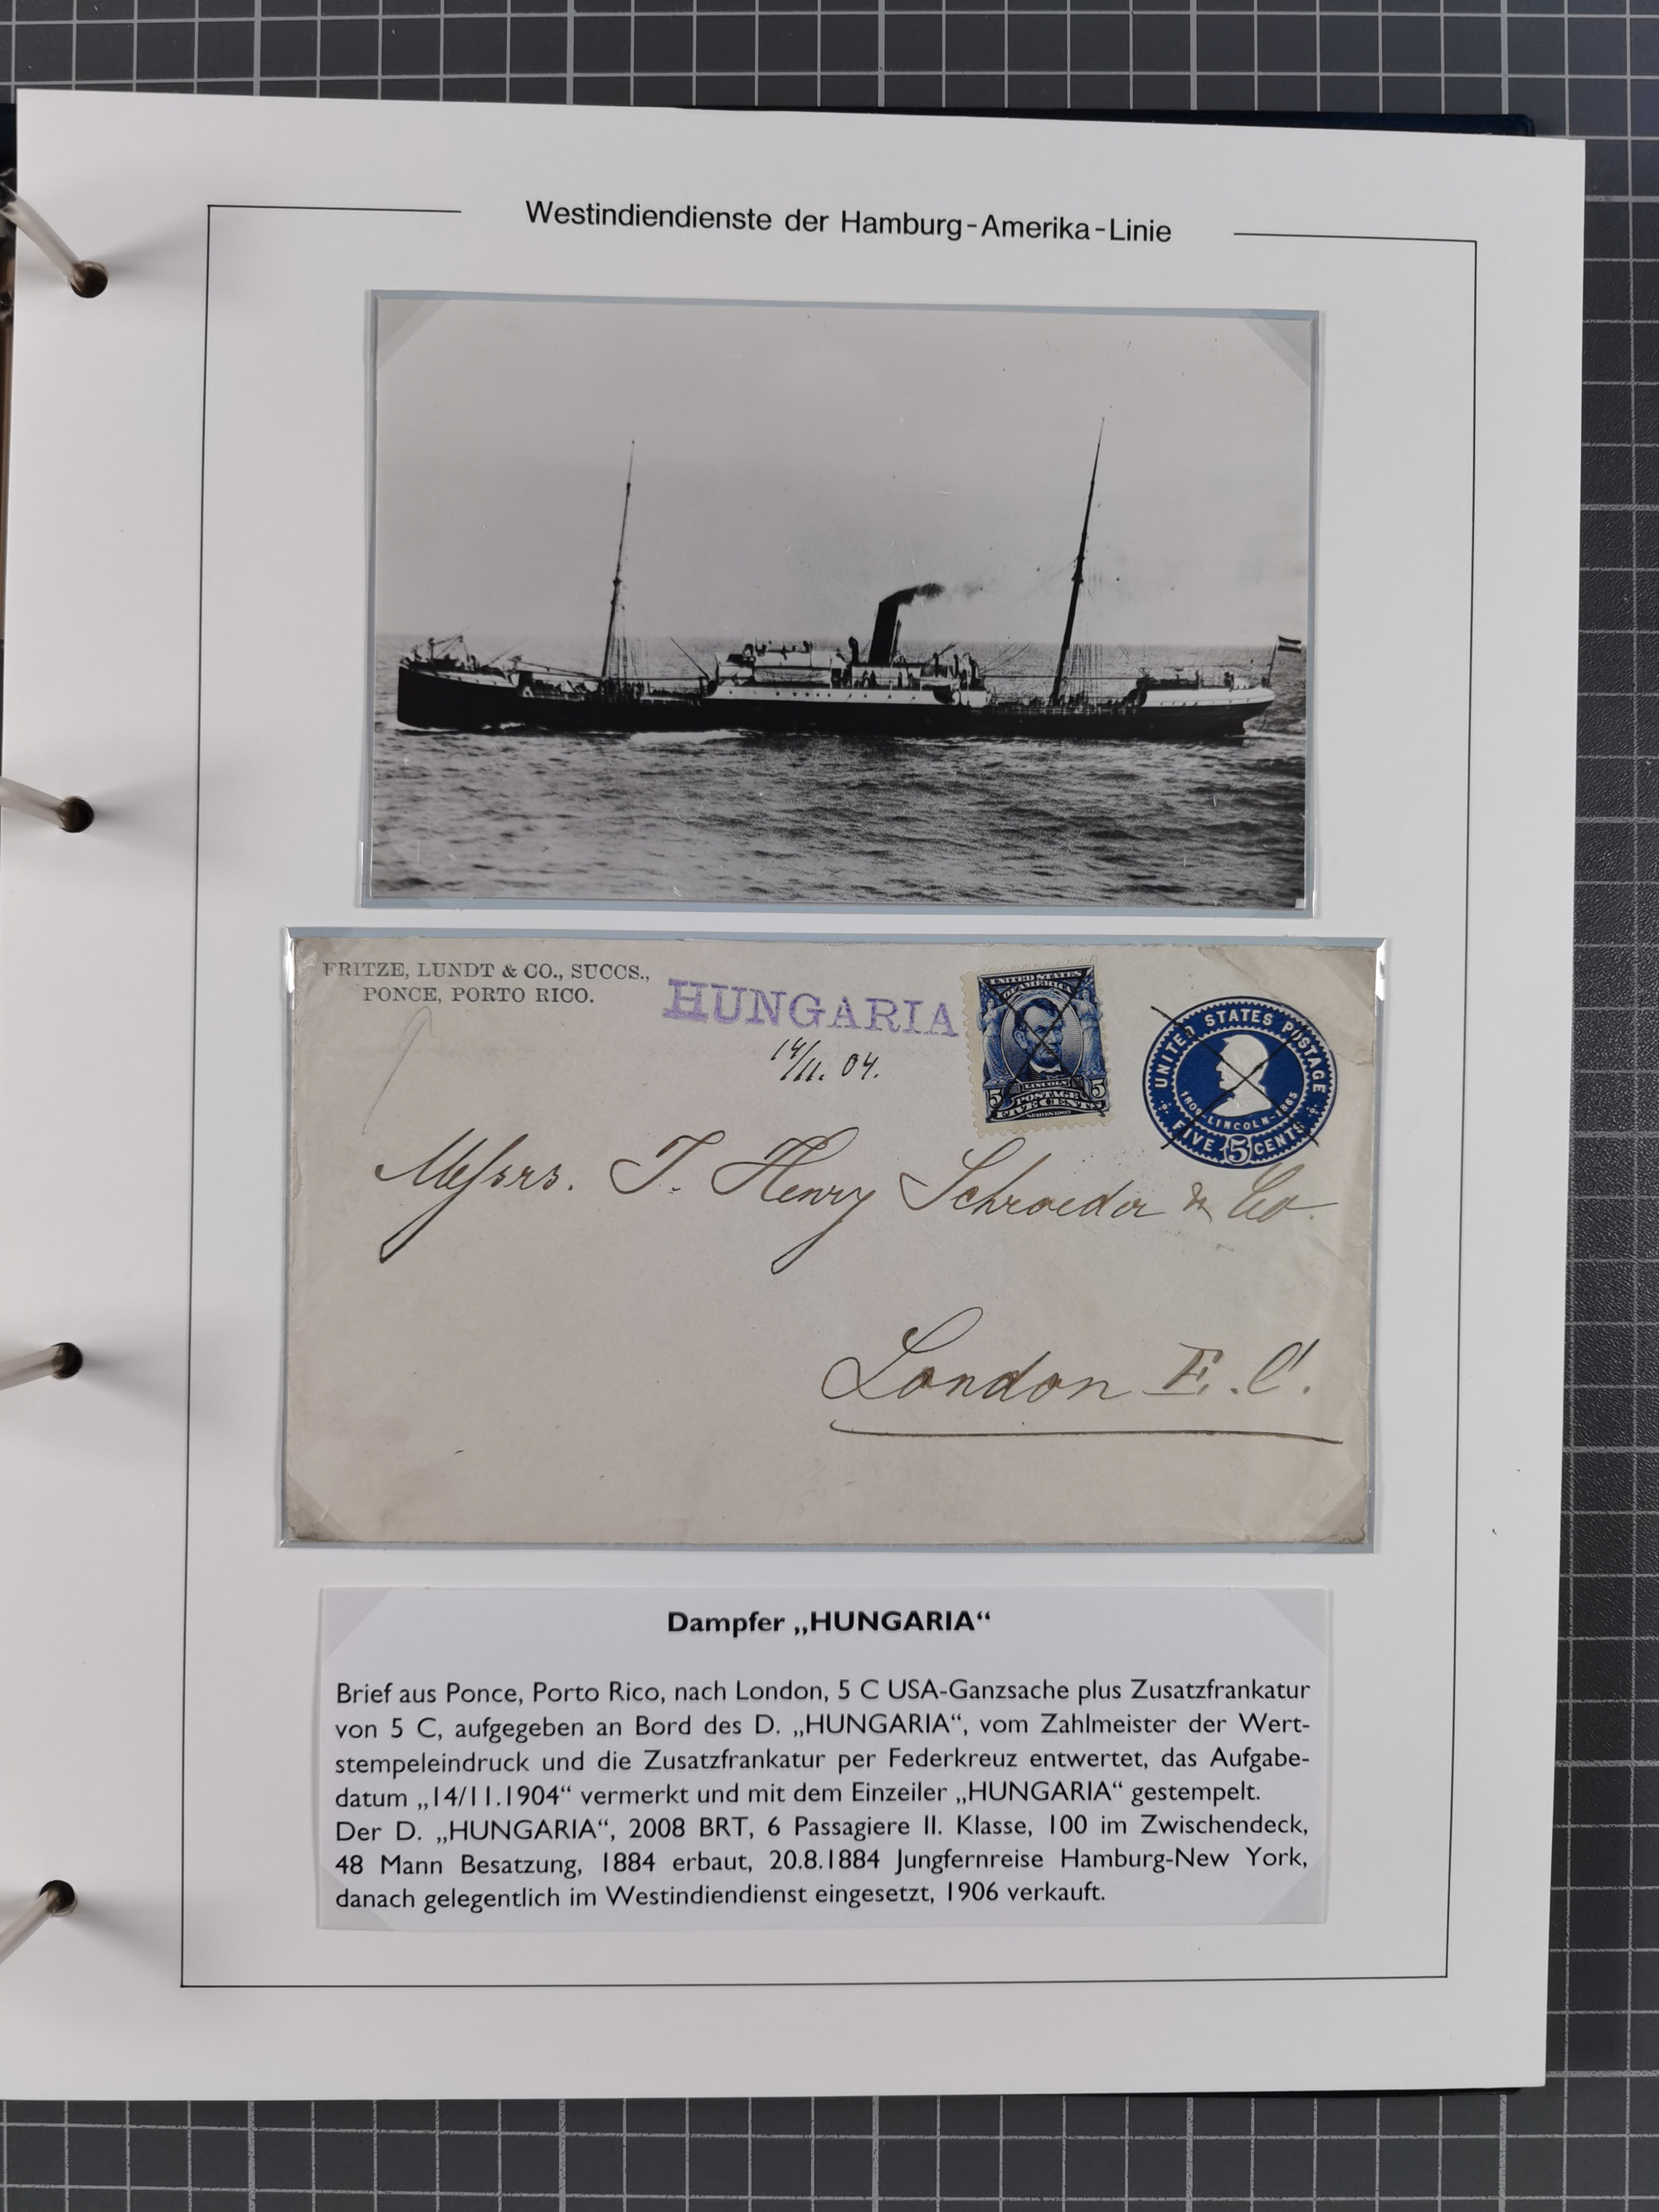 Westindiendienste der Hamburg-Amerika-Linie
FRITZE, LUNDT & CO., SUCCS.,
PONCE, PORTO RICO.
HUNGARIA
14/11. 04.
UNITED STATES
OF AMERICA
LINCOLN
5 POSTAGE 5
FIVE CENTS
SERIES 1902
UNITED STATES POSTAGE
1809-LINCOLN-1865
FIVE 5 CENTS
Messrs. J. Henry Schroeder & Co.
London E.C.
Dampfer „HUNGARIA“
Brief aus Ponce, Porto Rico, nach London, 5 C USA-Ganzsache plus Zusatzfrankatur
von 5 C, aufgegeben an Bord des D. „HUNGARIA“, vom Zahlmeister der Wert-
stempeleindruck und die Zusatzfrankatur per Federkreuz entwertet, das Aufgabe-
datum „14/11.1904“ vermerkt und mit dem Einzeiler „HUNGARIA“ gestempelt.
Der D. „HUNGARIA“, 2008 BRT, 6 Passagiere II. Klasse, 100 im Zwischendeck,
48 Mann Besatzung, 1884 erbaut, 20.8.1884 Jungfernreise Hamburg-New York,
danach gelegentlich im Westindiendienst eingesetzt, 1906 verkauft.